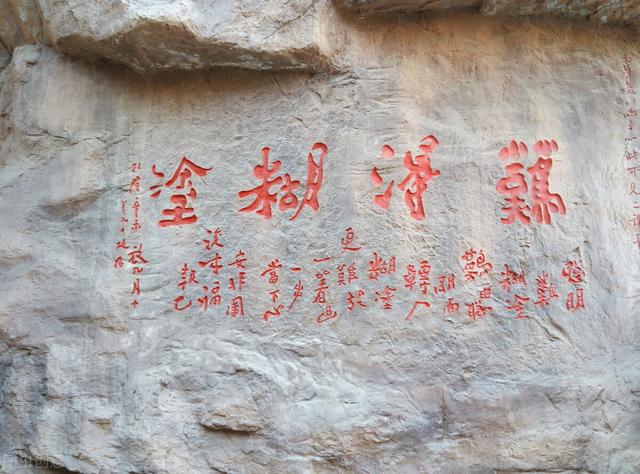 難得糊塗
聰明
難
糊塗
難由聰
明而
轉入
糊塗
更難放
一著
一步
當下心
安非圖
來福
報也
九月十